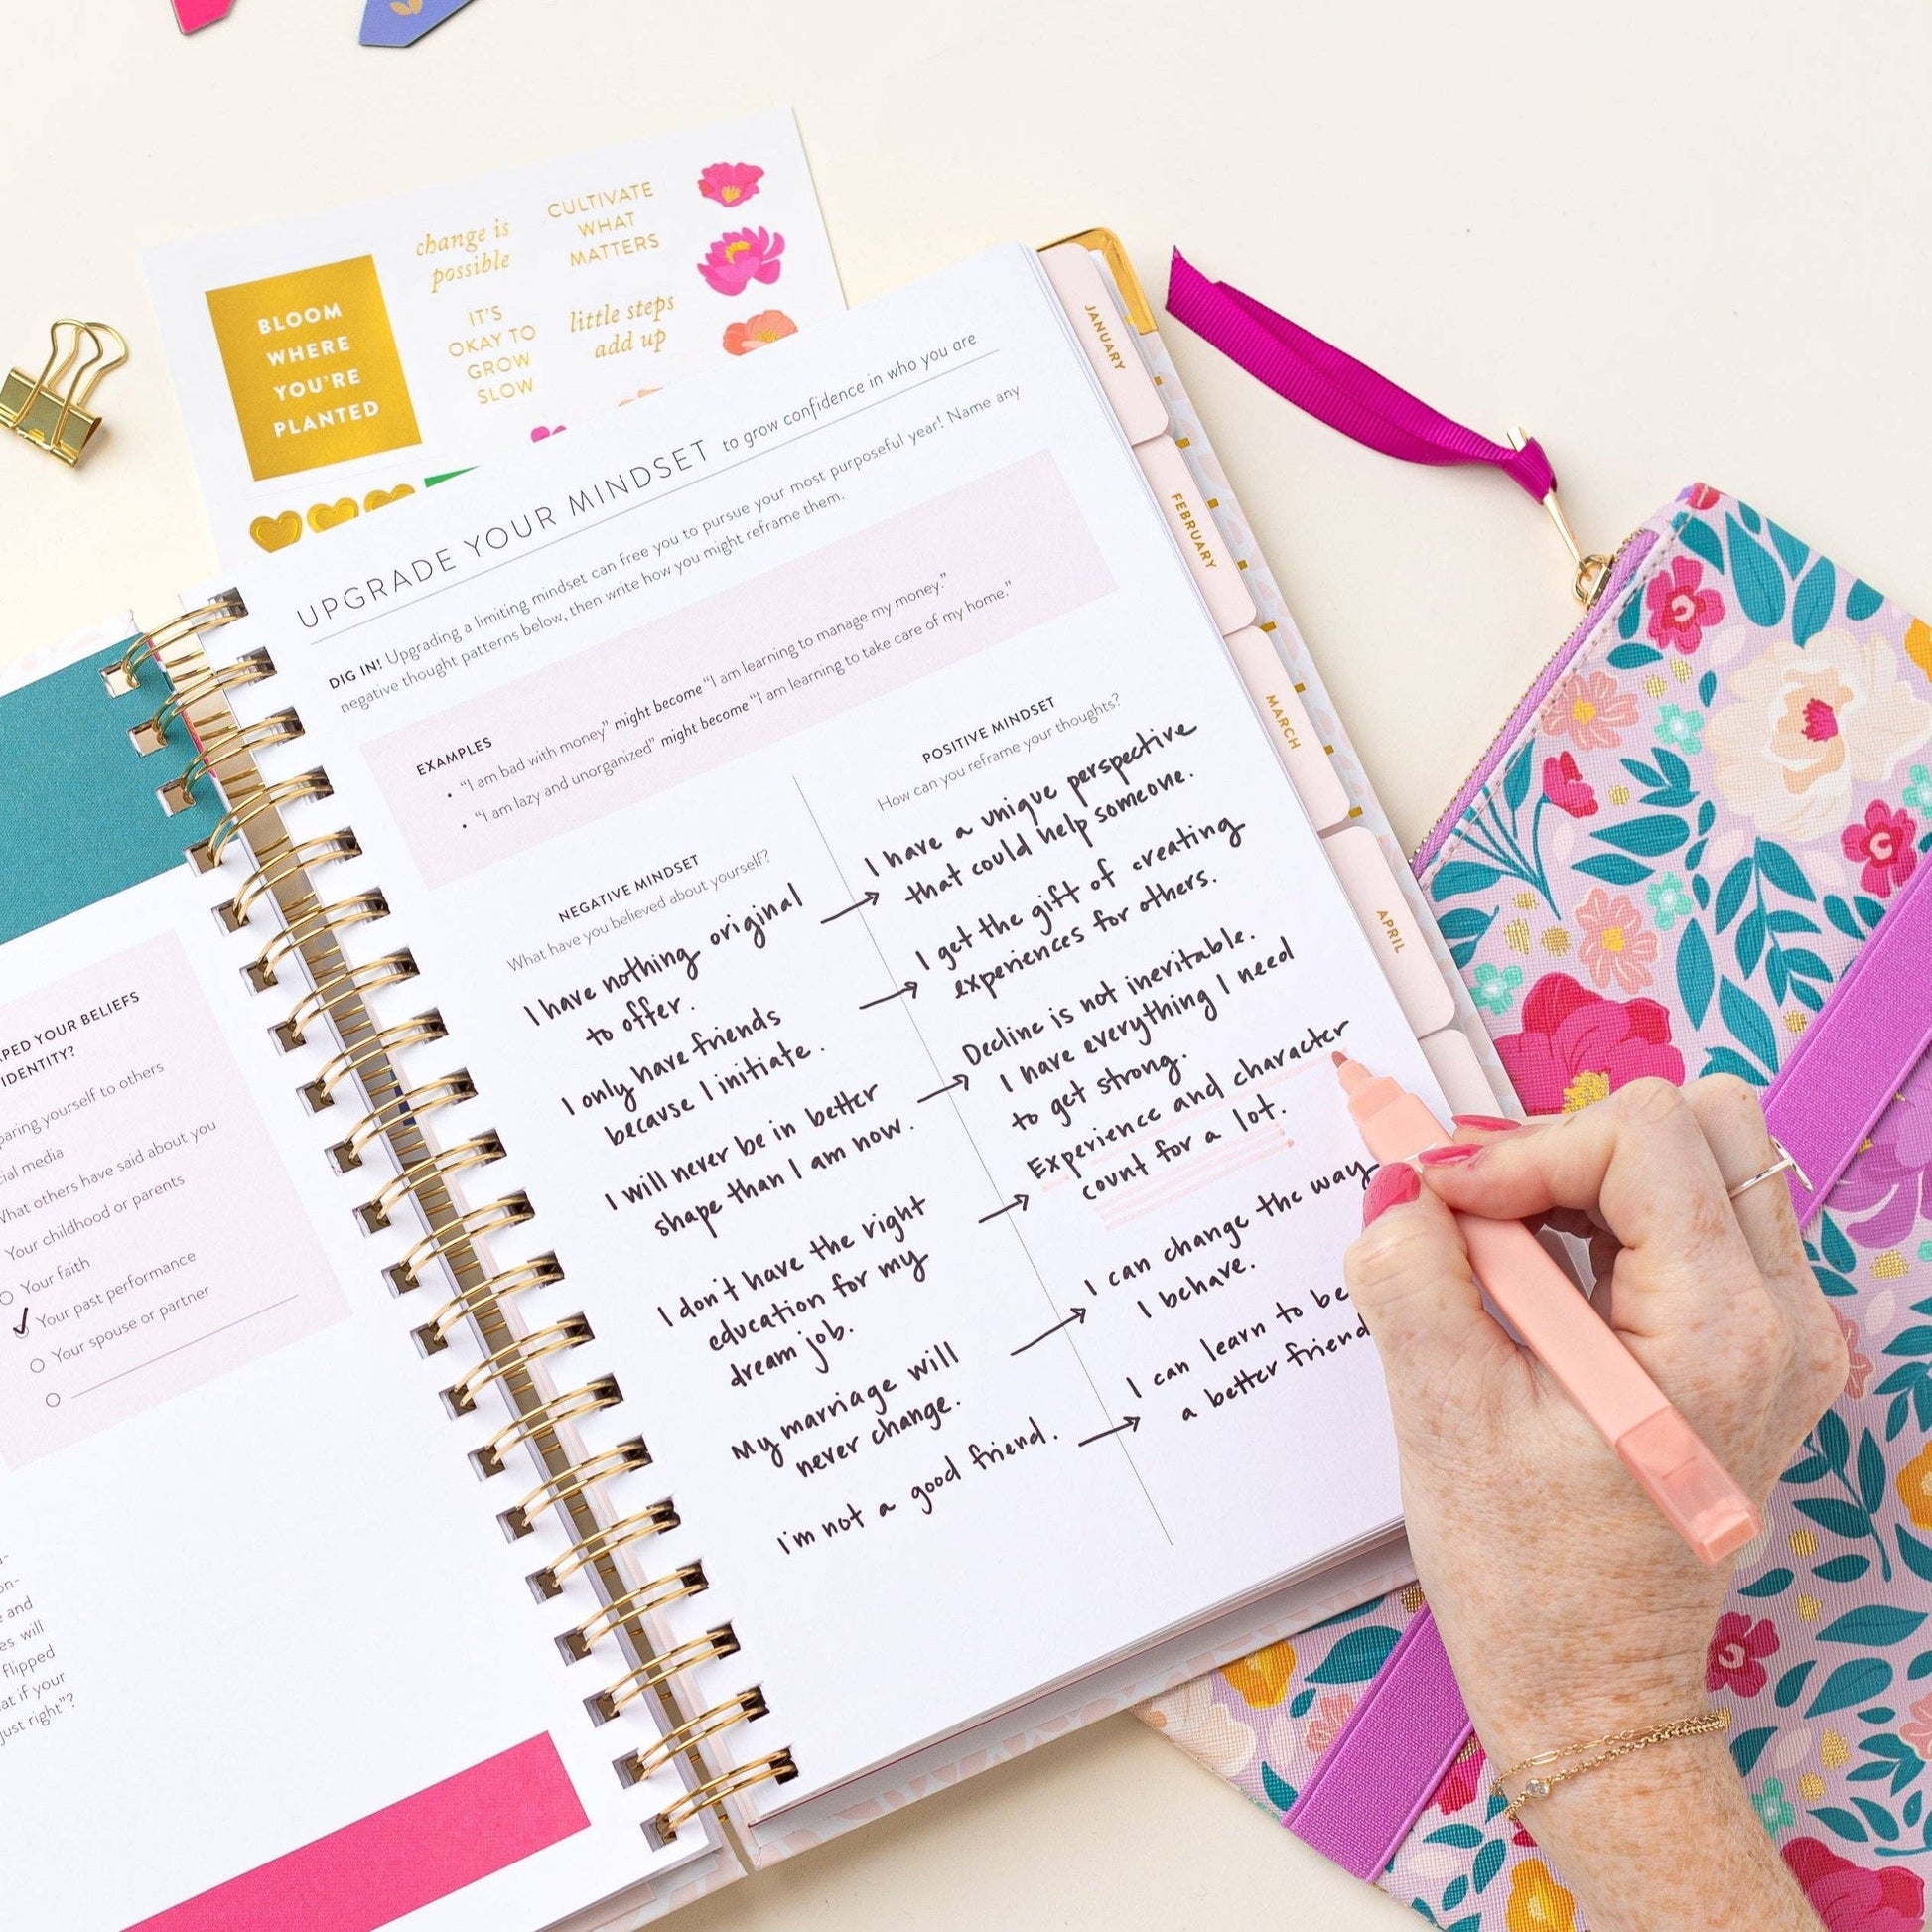 change is
possible
CULTIVATE
WHAT
MATTERS
BLOOM
WHERE
YOU'RE
PLANTED
IT'S
OKAY TO
GROW
SLOW
little steps
add up
UPGRADE YOUR MINDSET to grow confidence in who you are
DIG IN! Upgrading a limiting mindset can free you to pursue your most purposeful year! Name any
negative thought patterns below, then write how you might reframe them.
EXAMPLES
• "I am bad with money" might become "I am learning to manage my money."
• "I am lazy and unorganized" might become "I am learning to take care of my home."
NEGATIVE MINDSET
What have you believed about yourself?
I have nothing original
to offer.
I only have friends
because I initiate.
I will never be in better
shape than I am now.
I don't have the right
education for my
dream job.
My marriage will
never change.
I'm not a good friend.
POSITIVE MINDSET
How can you reframe your thoughts?
I have a unique perspective
that could help someone.
I get the gift of creating
experiences for others.
Decline is not inevitable.
I have everything I need
to get strong.
Experience and character
count for a lot.
I can change the way
I behave.
I can learn to be
a better friend
JANUARY
FEBRUARY
MARCH
APRIL
YOUR BELIEFS
IDENTITY?
yourself to others
media
What others have said about you
Your childhood or parents
Your faith
Your past performance
Your spouse or partner
and
will
flipped
if your
just right"?